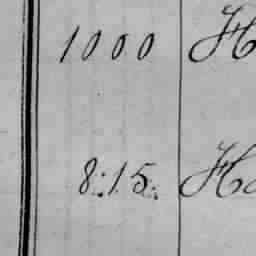 1000 H
8:15. H